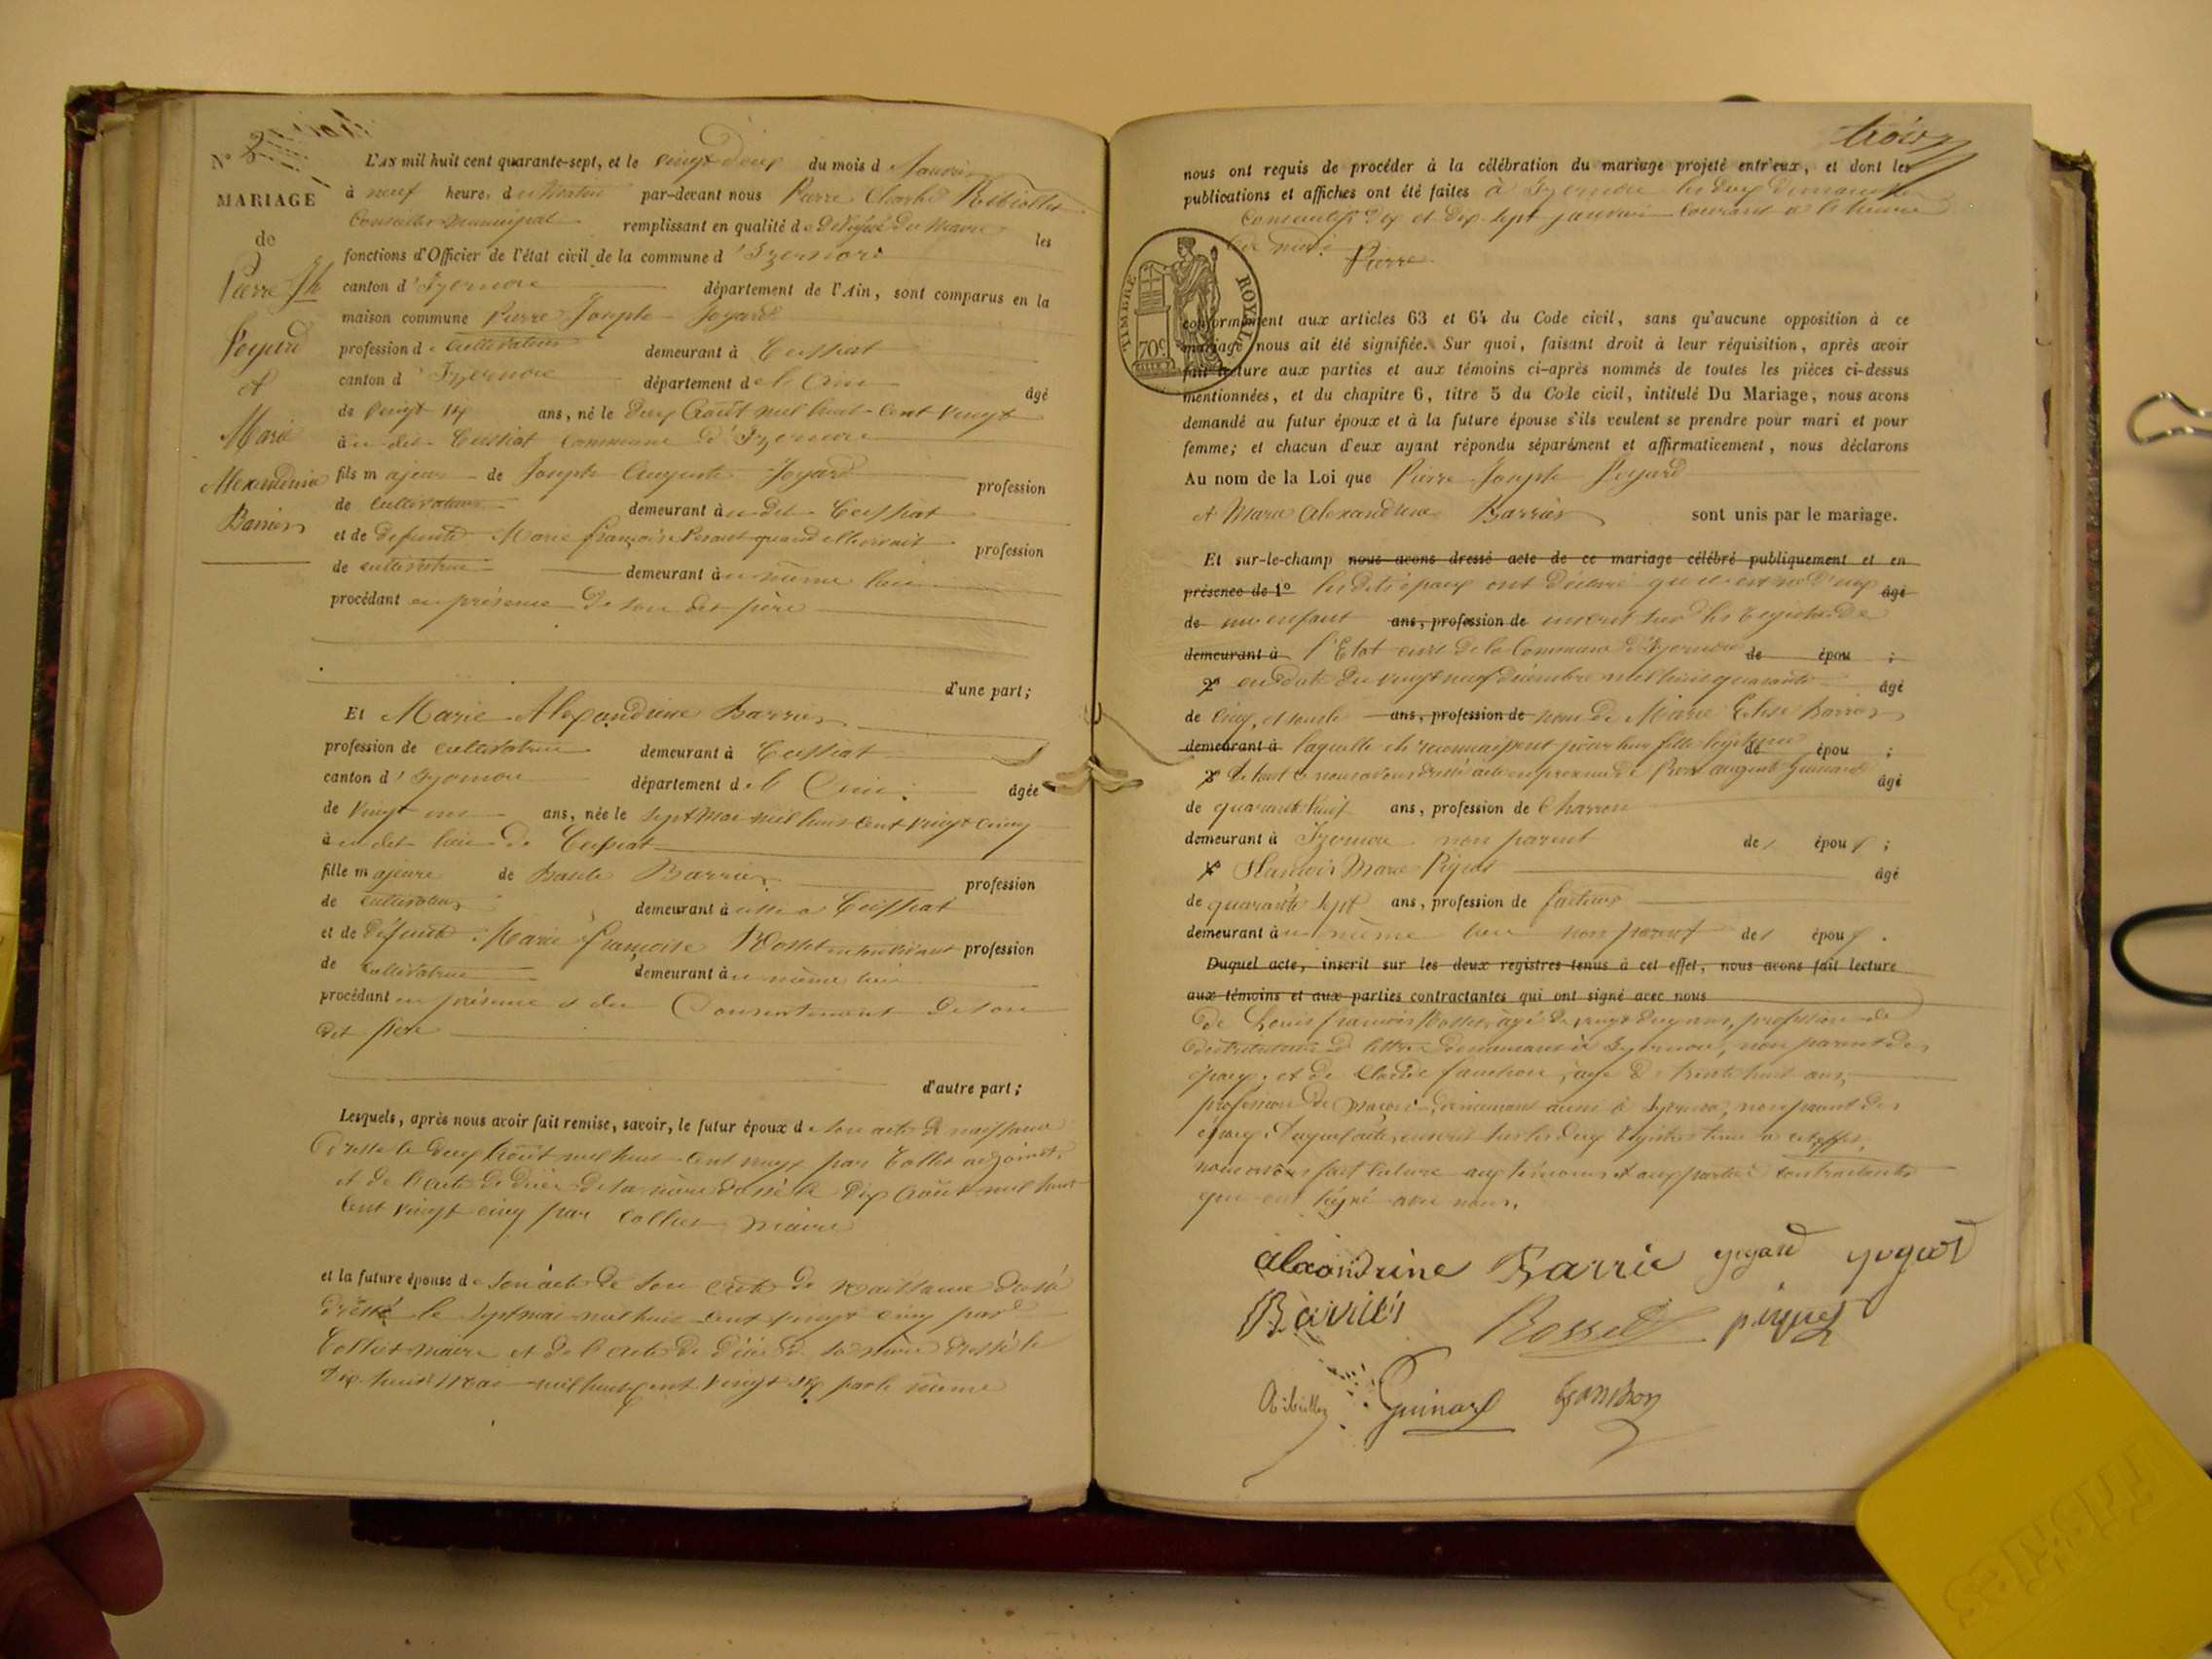 N° 3
MARIAGE
de
Pierre Jh
Joyard
et
Marie
Alexandrine
Barrier
L'AN mil huit cent quarante-sept, et le vingt deux du mois de Janvier
à neuf heure, du Matin par-devant nous Pierre Charles Ribiollet
Conseiller municipal remplissant en qualité de Délégué du Maire les
fonctions d'Officier de l'état civil de la commune d'Izernore
canton d'Izernore département de l'Ain, sont comparus en la
maison commune Pierre Joseph Joyard
profession de Cultivateur demeurant à Ceissiat
canton d'Izernore département de l'Ain âgé
de vingt six ans, né le deux Août mil huit cent vingt
à u dit Ceissiat commune d'Izernore
fils majeur de Joseph Auguste Joyard profession
de cultivateur demeurant à u dit Ceissiat
et de défunte Marie françoise quand elle vivait profession
de cultivatrice demeurant à u même lieu
procédant en présence de son dit père
d'une part;
Et Marie Alexandrine Barrier
profession de cultivatrice demeurant à Ceissiat
canton d'Izernore département de l'Ain âgée
de vingt un ans, née le sept Mai mil huit cent vingt cinq
à u dit lieu de Ceissiat
fille majeure de Barrier profession
de cultivateur demeurant à Ceissiat
et de défunte Marie françoise Rosset profession
de cultivatrice demeurant à u même lieu
procédant en présence et du Consentement de son
dit père
d'autre part;
Lesquels, après nous avoir fait remise, savoir, le futur époux de son acte de naissance
dressé le deux Août mil huit cent vingt par Collet adjoint,
et de l'acte de décès de sa mère dressé le dix Août mil huit
cent vingt cinq par Collet maire
et la future épouse de son acte de son acte de naissance
dressé le sept mai mil huit cent vingt cinq par
Collet maire et de l'acte de décès de sa mère dressé le
dix huit Mai mil huit cent vingt six par le même
trois
nous ont requis de procéder à la célébration du mariage projeté entr'eux, et dont les
publications et affiches ont été faites à Izernore les deux dimanches
consécutifs dix et dix sept janvier courant à l'heure
de midi.
Pierre
TIMBRE ROYAL
70c
conformément aux articles 63 et 64 du Code civil, sans qu'aucune opposition à ce
mariage nous ait été signifiée. Sur quoi, faisant droit à leur réquisition, après avoir
fait lecture aux parties et aux témoins ci-après nommés de toutes les pièces ci-dessus
mentionnées, et du chapitre 6, titre 5 du Code civil, intitulé Du Mariage, nous avons
demandé au futur époux et à la future épouse s'ils veulent se prendre pour mari et pour
femme; et chacun d'eux ayant répondu séparément et affirmativement, nous déclarons
Au nom de la Loi que Pierre Joseph Joyard
et Marie Alexandrine Barrier sont unis par le mariage.
Et sur-le-champ nous avons dressé acte de ce mariage célébré publiquement et en
présence de 1° les dits époux ont déclaré qu'il est né d'eux âgé
de un enfant ans, profession de inscrit sur les registres de
demeurant à l'Etat civil de la Commune d'Izernore de épou ;
2° en date du vingt neuf décembre mil huit quarante âgé
de cinq, et sous le ans, profession de nom de Marie Elise Barrier
demeurant à laquelle ils reconnaissent pour leur fille légitime de épou ;
3° de tout ce nous avons dressé acte en présence de Guinard âgé
de quarante huit ans, profession de Charron
demeurant à Izernore non parent des époux ;
4° François Marie Piquet âgé
de quarante sept ans, profession de facteur
demeurant à u même lieu non parent des époux.
Duquel acte, inscrit sur les deux registres tenus à cet effet, nous avons fait lecture
aux témoins et aux parties contractantes qui ont signé avec nous
de Louis françois Rosset, âgé de vingt deux ans, profession de
distributeur de lettres demeurant à Izernore, non parent des
époux, et de Claude fanchon, âgé de trente huit ans,
profession de maçon demeurant aussi à Izernore, non parent des
époux. Duquel acte, inscrit sur les deux registres tenus à cet effet,
nous avons fait lecture aux témoins et aux parties contractantes
qui ont signé avec nous.
alexandrine Barrié joyard joyard
Barrier Rosset piquet
Ribiollet Guinard fanchon